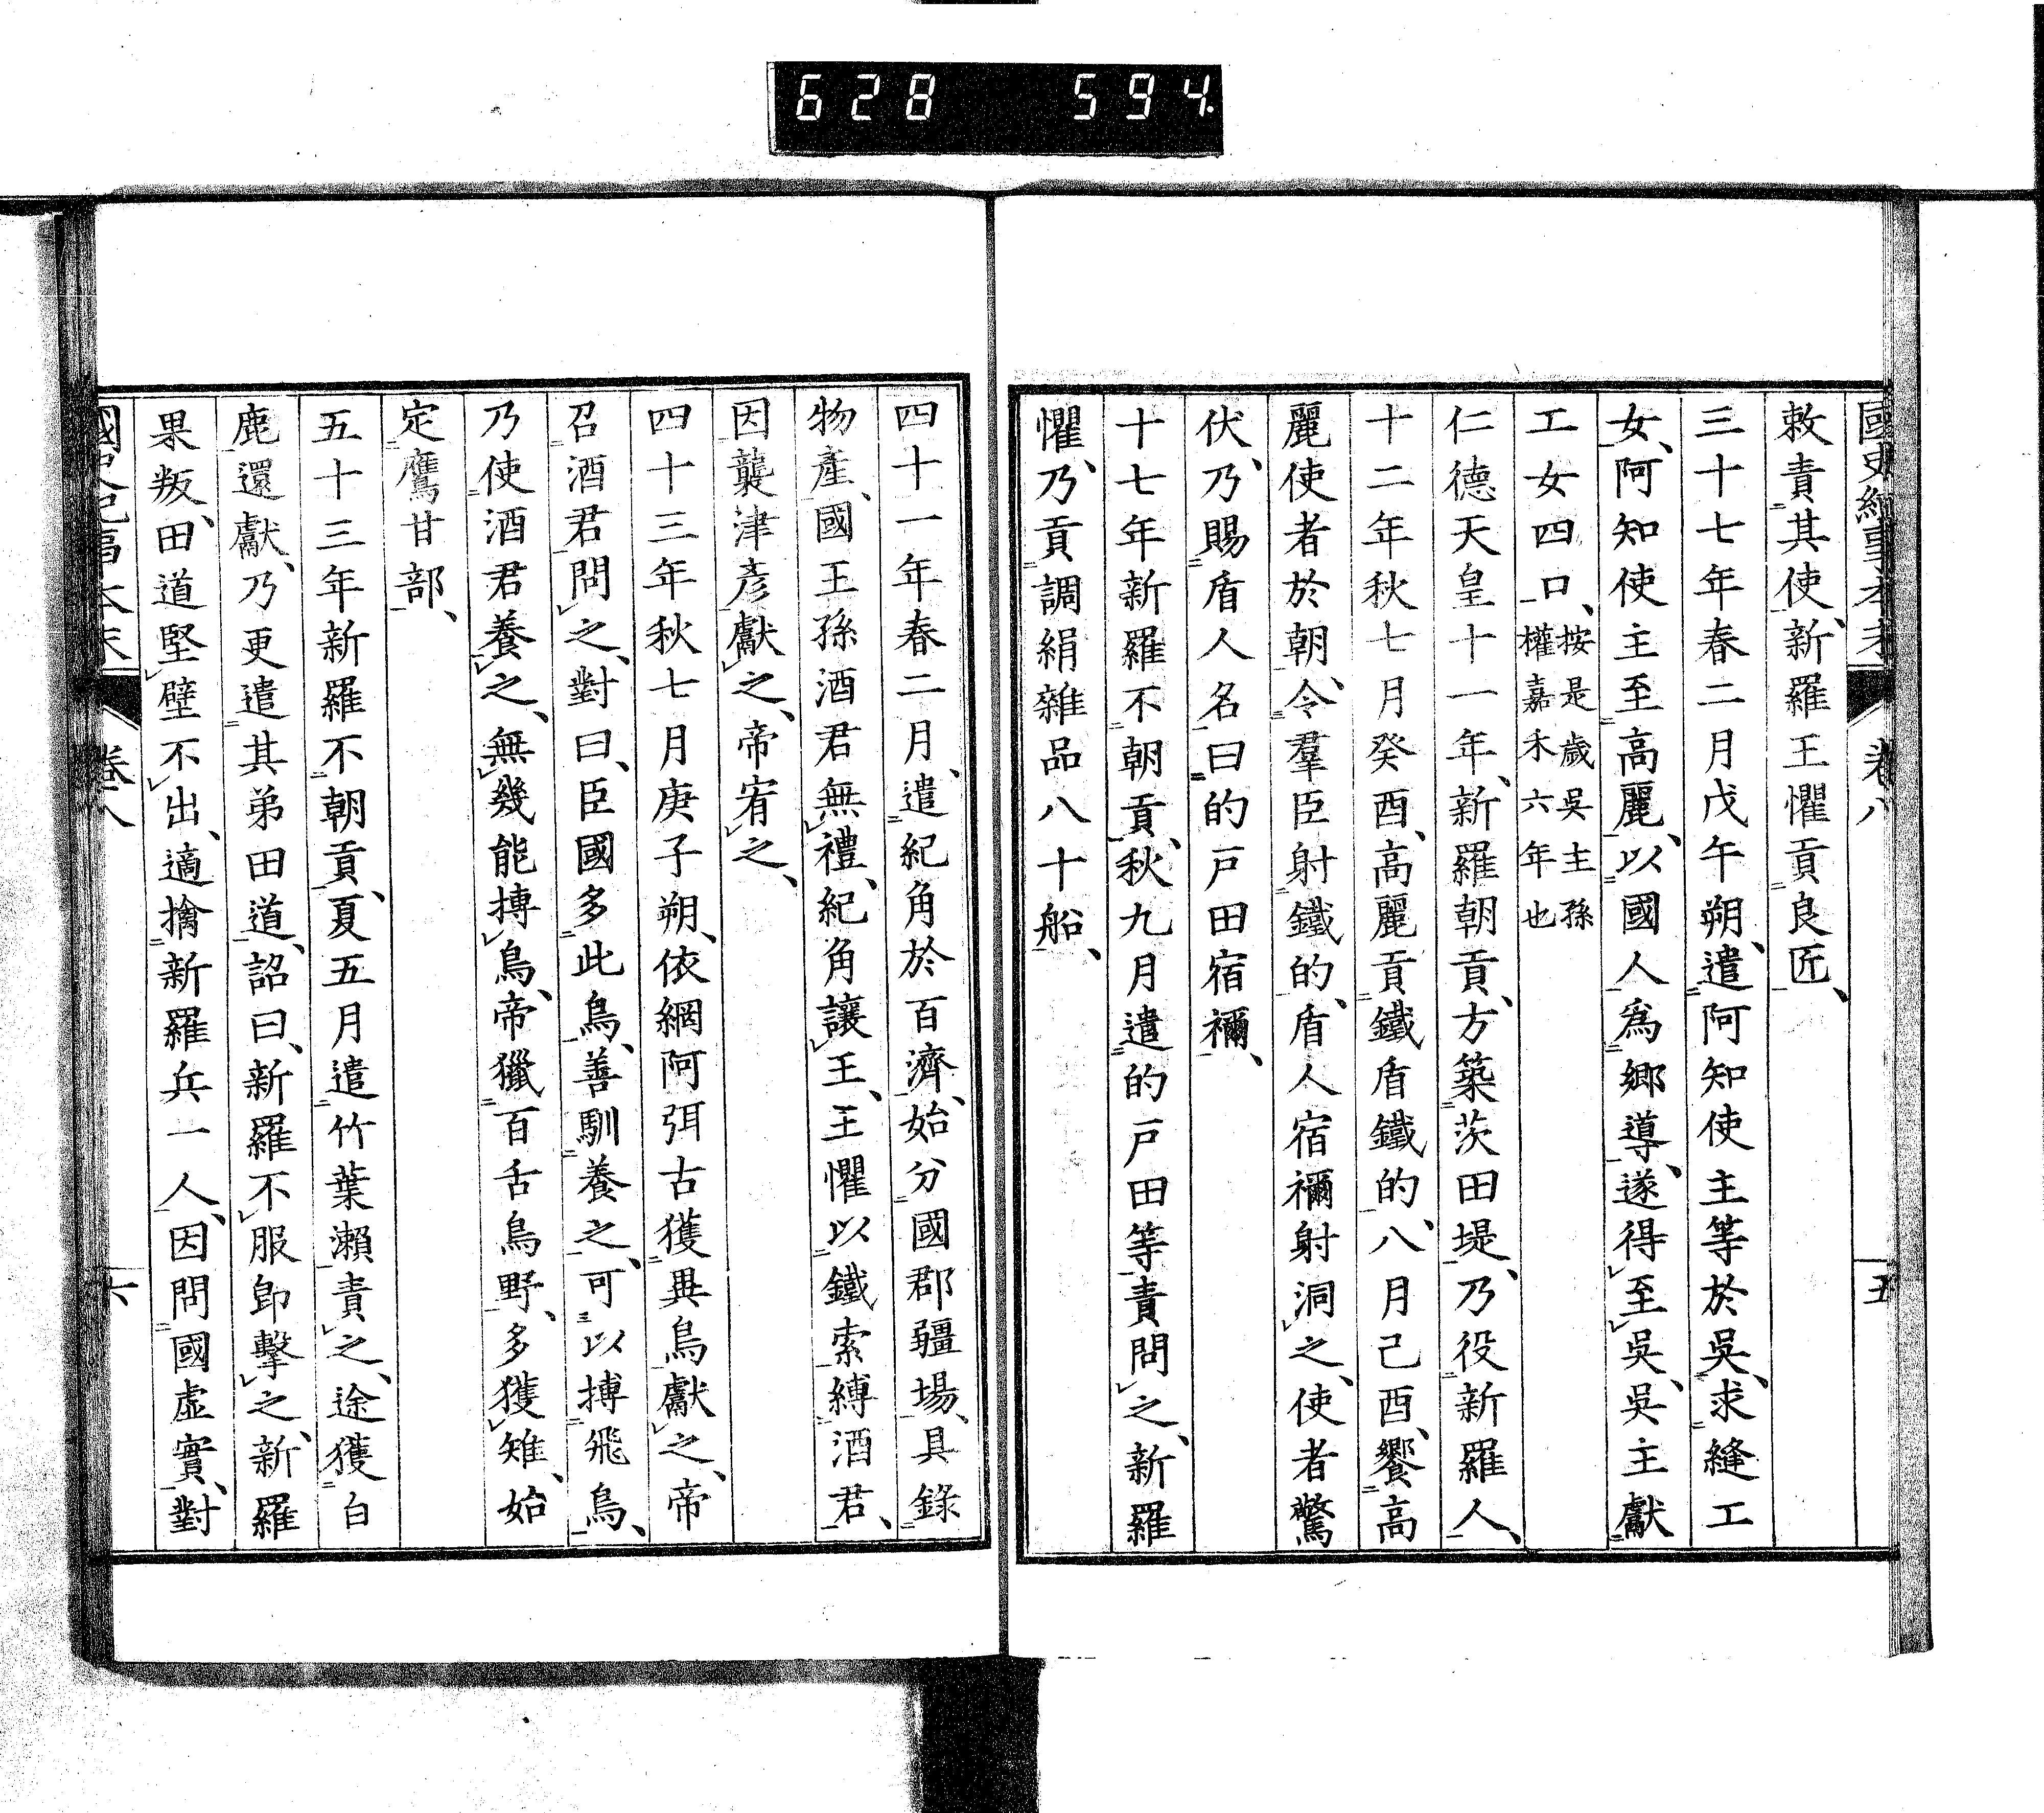 628 594
國史紀事本末 卷八 五
敕責其使、新羅王懼貢良匠、
三十七年春二月戊午朔、遣阿知使主等於吳、求縫工
女、阿知使主至高麗、以國人爲鄉導、遂得至吳、吳主獻
工女四口、按是歲吳主孫權嘉禾六年也
仁德天皇十一年、新羅朝貢、方築茨田堤、乃役新羅人、
十二年秋七月癸酉、高麗貢鐵盾鐵的、八月己酉、饗高
麗使者於朝、令羣臣射鐵的、盾人宿禰射洞之、使者驚
伏、乃賜盾人名曰的戸田宿禰、
十七年新羅不朝貢、秋九月遣的戸田等責問之、新羅
懼、乃貢調絹雜品八十船、
四十一年春二月、遣紀角於百濟、始分國郡疆場、具錄
物產、國王孫酒君無禮、紀角讓王、王懼以鐵索縛酒君、
因襲津彥獻之、帝宥之、
四十三年秋七月庚子朔、依網阿弭古獲異鳥獻之、帝
召酒君問之、對曰、臣國多此鳥、善馴養之、可以搏飛鳥、
乃使酒君養之、無幾能搏鳥、帝獵百舌鳥野、多獲雉、始
定鷹甘部、
五十三年新羅不朝貢、夏五月遣竹葉瀨責之、途獲白
鹿還獻、乃更遣其弟田道、詔曰、新羅不服卽擊之、新羅
果叛、田道堅壁不出、適擒新羅兵一人、因問國虛實、對
國史紀事本末 卷八 六